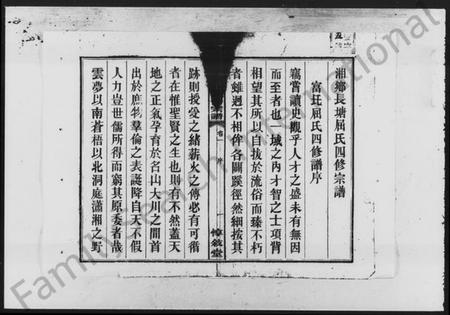 湘鄉長塘屈氏四修宗譜
富圫屈氏四修譜序
竊嘗讀史觀乎人才之盛未有無因
而至者也一域之內才智之士項背
相望其所以自拔於流俗而臻不朽
者雖迥不相侔各闢蹊徑然細按其
卷一 序
惇敘堂
跡則授受之緒薪火之傳必有可循
者在惟聖賢之生也則有不然蓋天
地之正氣孕育於名山大川之間首
出於庶物羣倫之表誕降自天不假
人力豈世儒所得而窮其原委者哉
雲夢以南蒼梧以北洞庭瀟湘之野
FamilySearch International